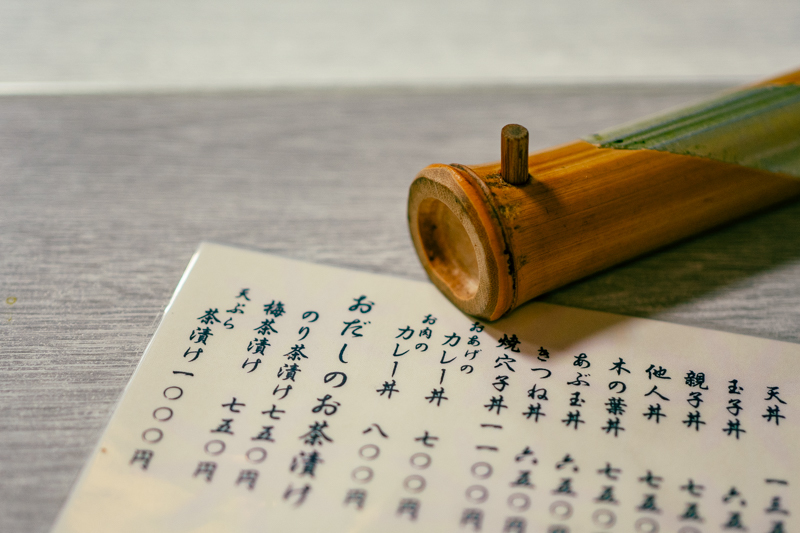 天丼 一三
玉子丼 六五
親子丼 七五〇
他人丼 七五〇
木の葉丼 七五〇
あぶ玉丼 六五〇
きつね丼 六五〇円
焼穴子丼 一一〇〇円
おあげの
カレー丼 七〇〇円
お肉の
カレー丼 八〇〇円
おだしのお茶漬け
のり茶漬け 七五〇円
梅茶漬け 七五〇円
天ぷら
茶漬け 一〇〇〇円